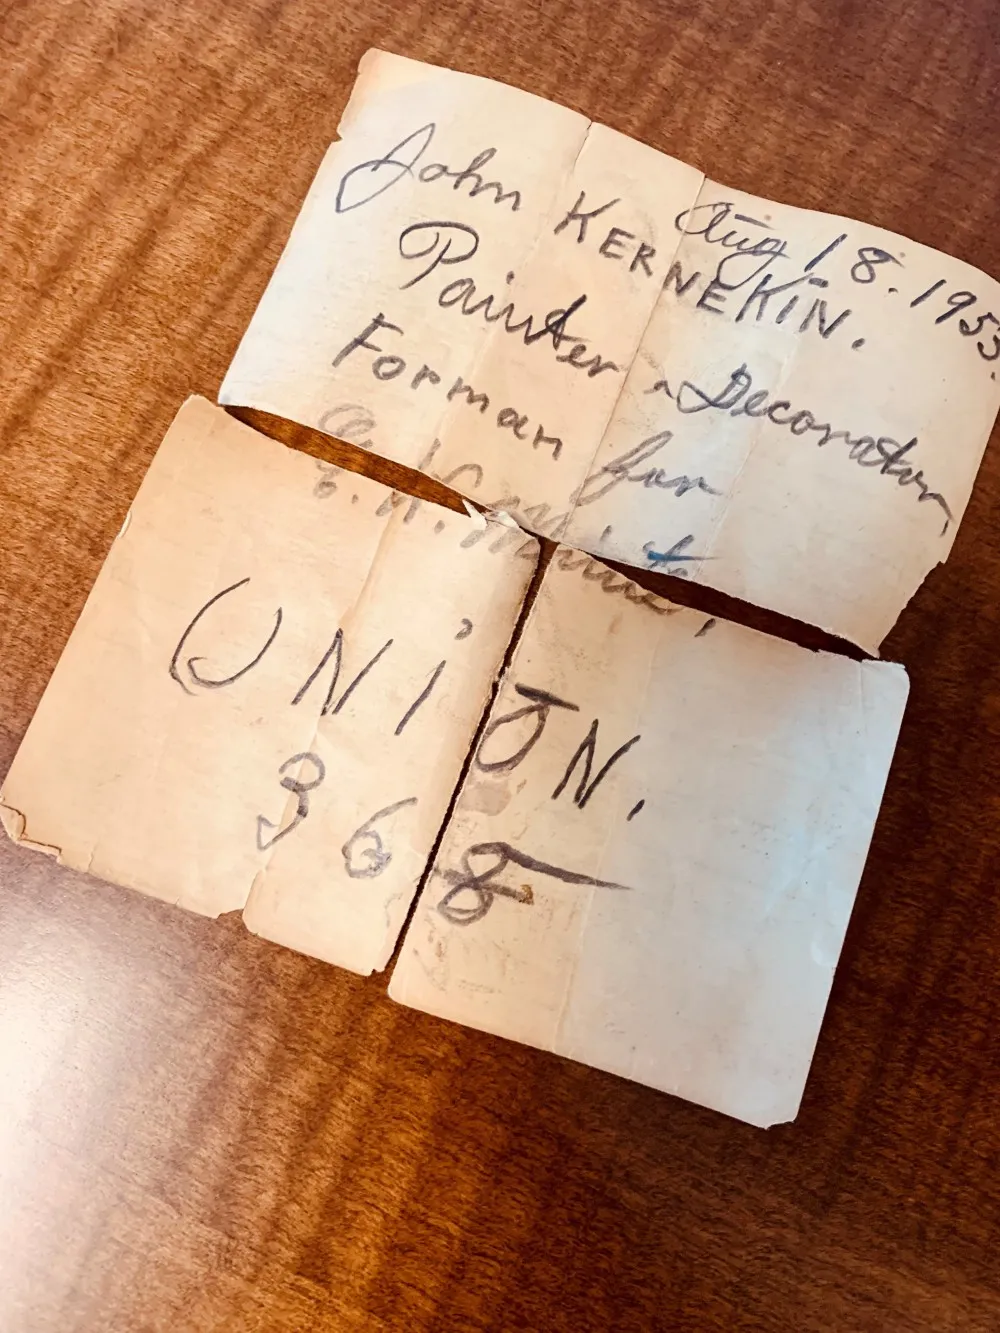 Aug 18. 1953.
John KERNEKIN.
Painter & Decorator
Forman for
E. H.
UNION.
368